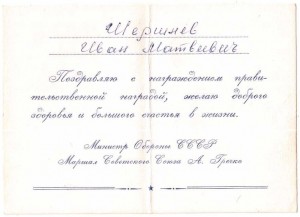 Шершнев
Иван Матвеевич
Поздравляю с награждением прави-
тельственной наградой, желаю доброго
здоровья и большого счастья в жизни.
Министр Обороны СССР
Маршал Советского Союза А. Гречко